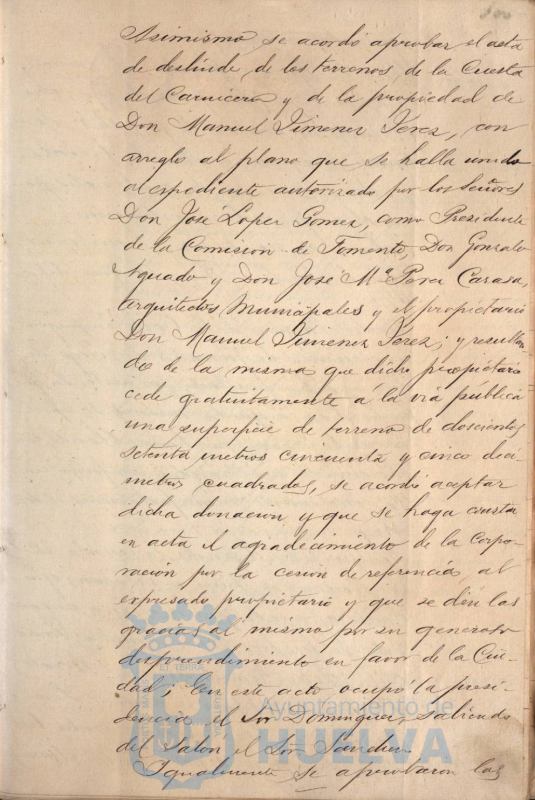 Asimismo se acordó aprobar el acta
de deslinde de los terrenos de la Cuesta
del Carnicero y de la propiedad de
Don Manuel Jimenez Jerez, con
arreglo al plano que se halla unido
al espediente autorizado por los Señores
Don José Lopez Gomez, como Presidente
de la Comision de Fomento, Don Gonzalo
Aguado y Don José Mª Perez Carasa,
arquitectos Municipales y el propietario
Don Manuel Jimenez Jerez; y resultan-
do de la misma que dicho propietario
cede gratuitamente á la via pública
una superficie de terreno de doscientos
setenta metros cincuenta y cinco decí-
metros cuadrados, se acordó aceptar
dicha donacion y que se haga constar
en acta el agradecimiento de la Corpo-
ración por la cesion de referencia, al
expresado propietario y que se den las
gracias al mismo por su generoso
desprendimiento en favor de la Ciu-
dad; En este acto ocupó la presi-
dencia el Sor Dominguez, saliendo
del Salon el Sor Sanchez.
Igualmente se aprobaron las
Ayuntamiento de
HUELVA